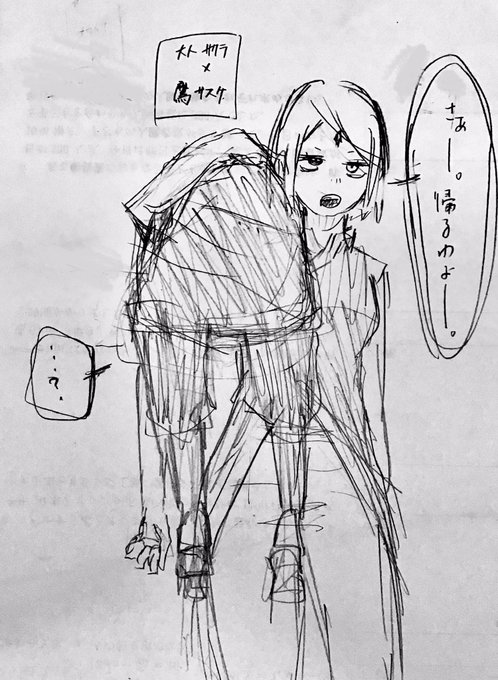 大人サクラ
×
鷹サスケ
さぁー。帰るわよー。
…?